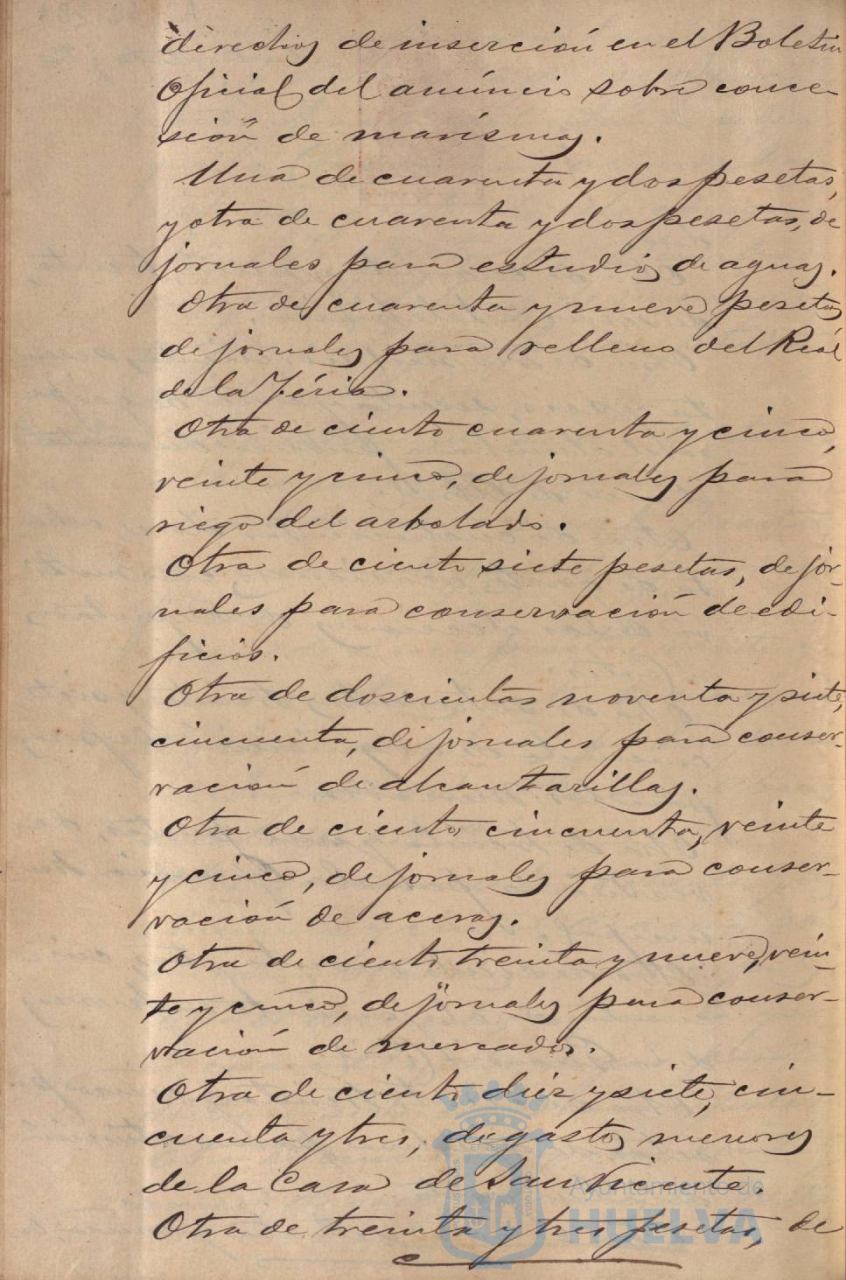 derechos de inserción en el Boletin
Oficial del anúncio sobre conce-
sión de marismas.
Una de cuarenta y dos pesetas,
y otra de cuarenta y dos pesetas, de
jornales para estudios de aguas.
Otra de cuarenta y nueve pesetas
de jornales para relleno del Reál
de la Féria.
Otra de ciento cuarenta y cinco,
veinte y cinco, de jornales para
riego del arbolado.
Otra de ciento siete pesetas, de jor-
nales para conservación de edi-
ficios.
Otra de doscientas noventa y siete,
cincuenta, de jornales para conser-
vación de alcantarillas.
Otra de ciento cincuenta, veinte
y cinco, de jornales para conser-
vación de aceras.
Otra de ciento treinta y nueve, vein-
te y cinco, de jornales para conser-
vación de mercados.
Otra de ciento diez y siete, cin-
cuenta y tres, de gastos menores
de la Casa de San Vicente.
Otra de treinta y tres pesetas, de
Ayuntamiento de
HUELVA